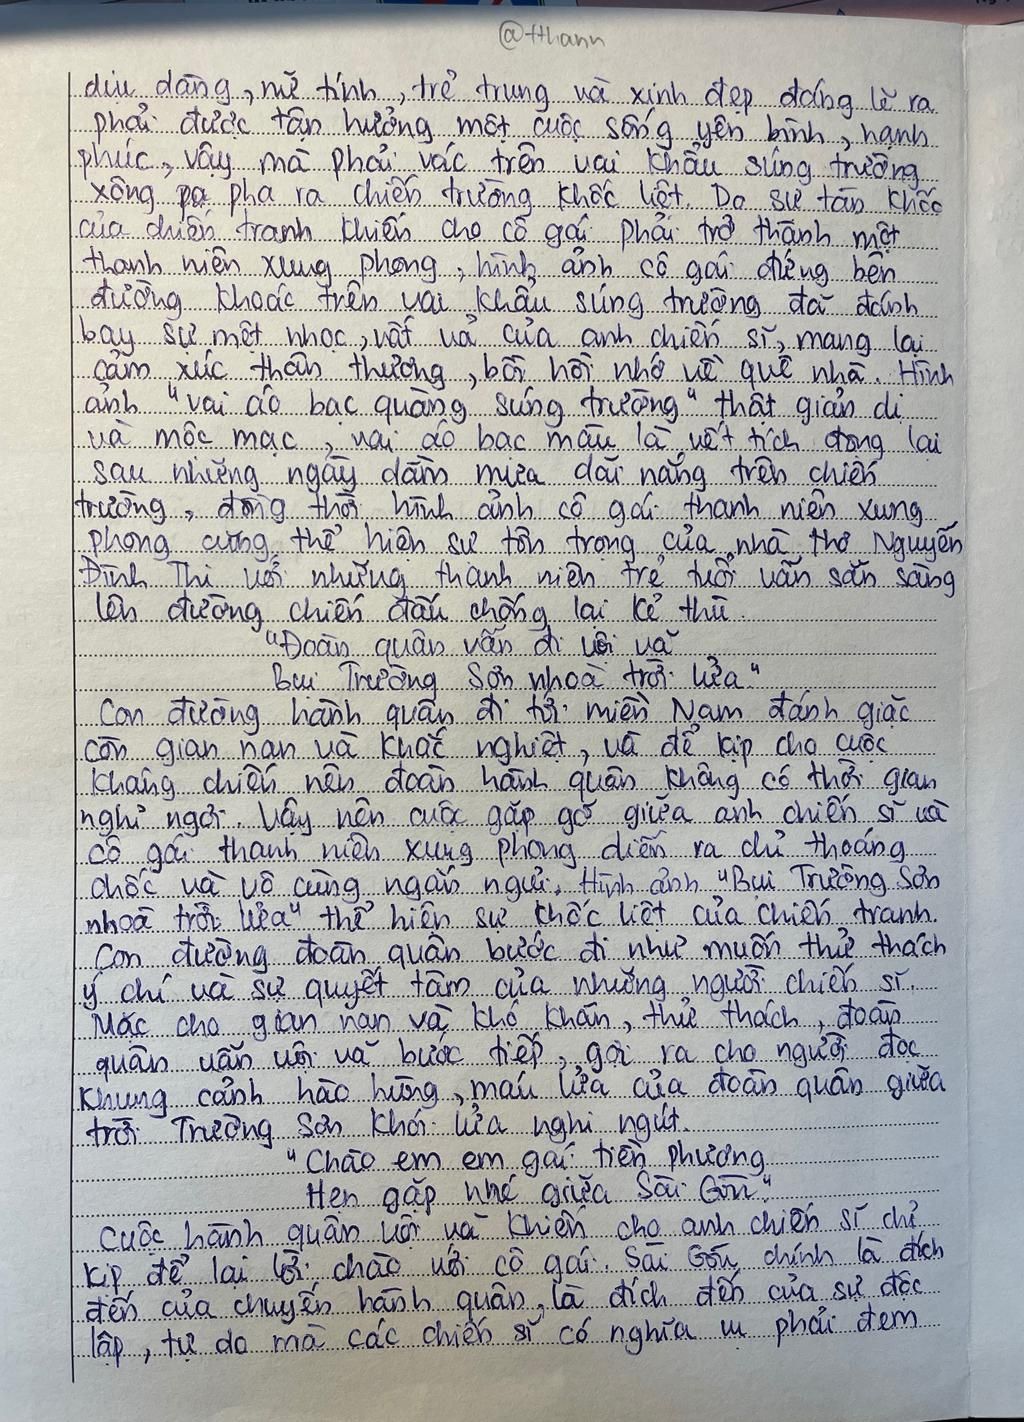 @tthann
dịu dàng, nữ tính, trẻ trung và xinh đẹp đáng lẽ ra
phải được tận hưởng một cuộc sống yên bình, hạnh
phúc, vậy mà phải vác trên vai khẩu súng trường
xông pa pha ra chiến trường khốc liệt. Do sự tàn khốc
của chiến tranh khiến cho cô gái phải trở thành một
thanh niên xung phong, hình ảnh cô gái đứng bên
đường khoác trên vai khẩu súng trường đã đánh
bay sự mệt nhọc, vất vả của anh chiến sĩ, mang lại
cảm xúc thân thương, bồi hồi nhớ về quê nhà. Hình
ảnh "vai áo bạc quàng súng trường" thật giản dị
và mộc mạc, vai áo bạc màu là vết tích đọng lại
sau những ngày dầm mưa dãi nắng trên chiến
trường, đồng thời hình ảnh cô gái thanh niên xung
phong cũng thể hiện sự tôn trọng của nhà thơ Nguyễn
Đình Thi với những thanh niên trẻ tuổi vẫn sẵn sàng
lên đường chiến đấu chống lại kẻ thù.
"Đoàn quân vẫn đi vội vã
Bụi Trường Sơn nhoà trời lửa"
Con đường hành quân đi tới miền Nam đánh giặc
còn gian nan và khắc nghiệt, và để kịp cho cuộc
kháng chiến nên đoàn hành quân không có thời gian
nghỉ ngơi. Vậy nên cuộc gặp gỡ giữa anh chiến sĩ và
cô gái thanh niên xung phong diễn ra chỉ thoáng
chốc và vô cùng ngắn ngủi. Hình ảnh "Bụi Trường Sơn
nhoà trời lửa" thể hiện sự khốc liệt của chiến tranh.
Con đường đoàn quân bước đi như muốn thử thách
ý chí và sự quyết tâm của những người chiến sĩ.
Mặc cho gian nan và khó khăn, thử thách, đoàn
quân vẫn vội vã bước tiếp, gợi ra cho người đọc
khung cảnh hào hùng, máu lửa của đoàn quân giữa
trời Trường Sơn khói lửa nghi ngút.
"Chào em em gái tiền phương
Hẹn gặp nhé giữa Sài Gòn"
Cuộc hành quân vội vã khiến cho anh chiến sĩ chỉ
kịp để lại lời chào với cô gái. Sài Gòn chính là đích
đến của chuyến hành quân, là đích đến của sự độc
lập, tự do mà các chiến sĩ có nghĩa vụ phải đem